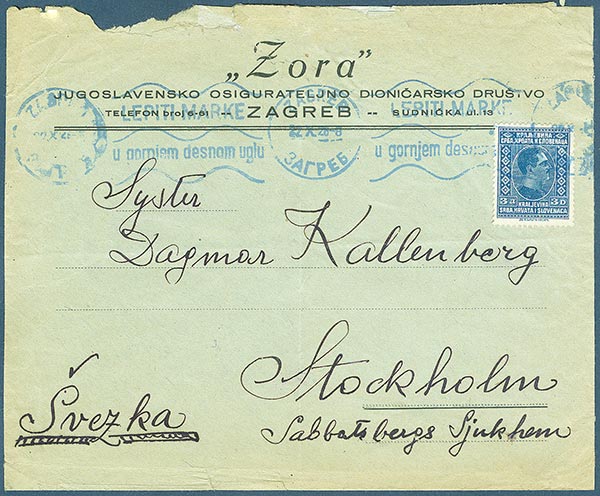 „Zora”
JUGOSLAVENSKO OSIGURATELJNO DIONIČARSKO DRUŠTVO
TELEFON broj 6-61 -- ZAGREB -- SUDNIČKA ul. 13
LEPITI MARKE
u gornjem desnom uglu
ZAGREB
ЗАГРЕБ
LEPITI MARKE
u gornjem desnom
КРАЉЕВИНА
СРБА, ХРВАТА И СЛОВЕНАЦА
3 Д 3 D
KRALJEVINA
SRBA, HRVATA I SLOVENACA
Syster
Dagmar Kallenberg
Stockholm
Švezka
Sabbatsbergs Sjukhem